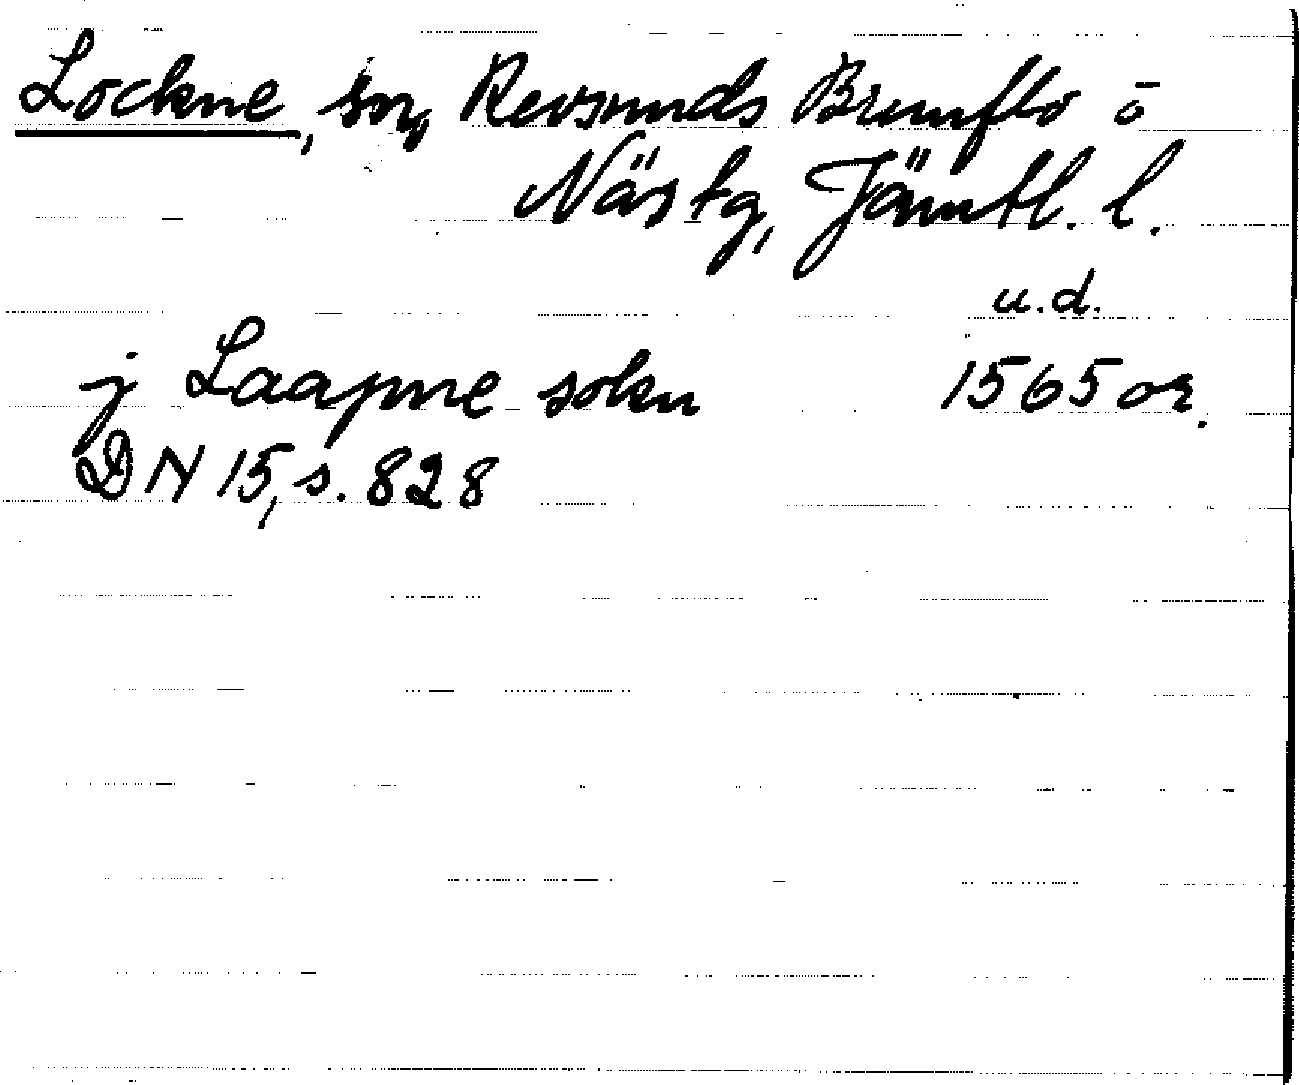 Lockne, sn, Revsunds Brunflo o
Näs tg, Jämtl. l.
u.d.
j Laapne sokn 1565 or.
DN 15, s. 828